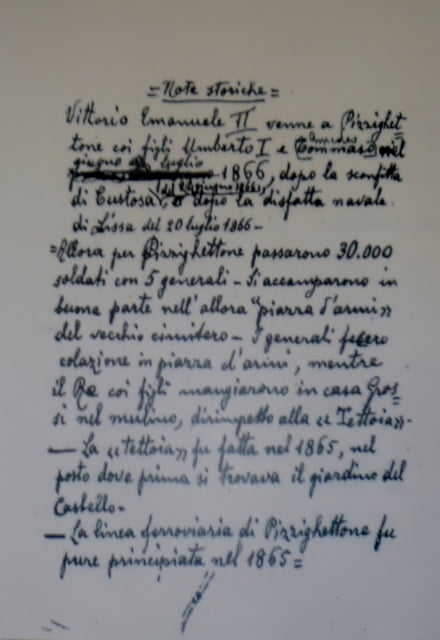 = Note storiche =
Vittorio Emanuele II venne a Pizzighet=
tone coi figli Umberto I e Tommaso nel
Amedeo
giugno luglio
1866, dopo la sconfitta
di Custosa (del 24 giugno 1866), o dopo la disfatta navale
di Lissa del 20 luglio 1866 -
= Allora per Pizzighettone passarono 30.000
soldati con 5 generali - Si accamparono in
buona parte nell'allora "piazza d'armi"
del vecchio cimitero - I generali fecero
colazione in piazza d'armi, mentre
il Re coi figli mangiarono in casa Gros=
si nel mulino, dirimpetto alla "Tettoia" -
— La "tettoia" fu fatta nel 1865, nel
posto dove prima si trovava il giardino del
Castello -
— La linea ferroviaria di Pizzighettone fu
pure principiata nel 1865 =